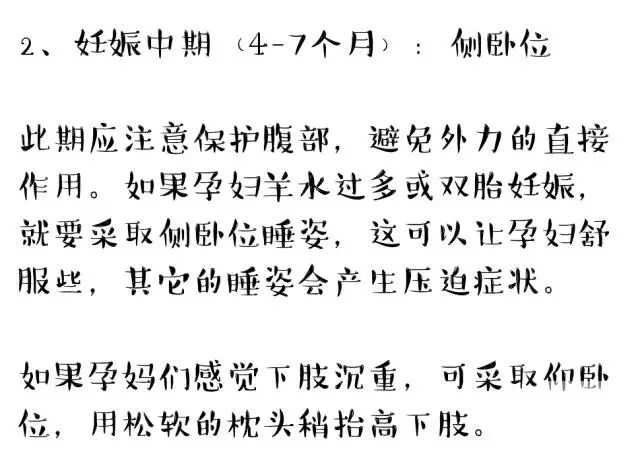 2、妊娠中期（4-7个月）：侧卧位
此期应注意保护腹部，避免外力的直接
作用。如果孕妇羊水过多或双胎妊娠，
就要采取侧卧位睡姿，这可以让孕妇舒
服些，其它的睡姿会产生压迫症状。
如果孕妈们感觉下肢沉重，可采取仰卧
位，用松软的枕头稍抬高下肢。